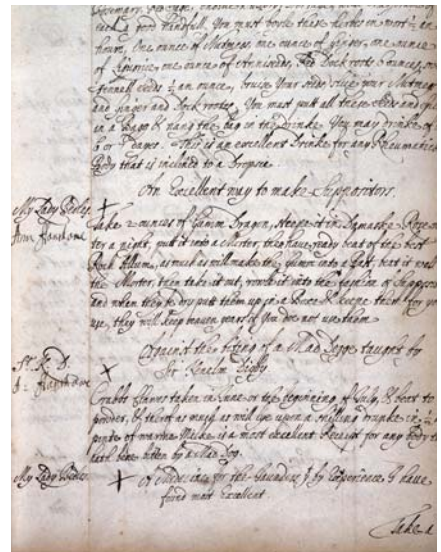 each a good handfull. You must boyle these herbes in wort ½ an
houre, One ounce of Nutmegs, one ounce of Ginger, one ounce
of Liquorice, one ounce of Anniseeds, Red Dock roots 6 ounces, of
fennell seeds ½ an ounce, bruise Your seeds, slice your Nutmegs
and ginger and Dock rootes, You must putt all these
in a Bagg & hang the bag in the Drinke. You may drinke of
6 or 7 dayes. This is an excellent Drinke for any Rheumatick
Body that is inclined to a Dropsie
An Excellent way to make Suppositors.
My Lady
Take 2 ounces of Gumm Dragon, steepe it in Damaske Rose
ter a night, putt it into a Morter, then have ready beat of the best
Rock Allum, as much as will make the Gumm into a Past, beat it well
the Morter, then take it out, worke it into the fashion of
and when they be dry putt them up in a Boxe & keepe them for
use, they will keep seaven yeares if You doe not use them
Against the biting of a Mad Dogge taught by
Sr. K. D.
Sr Kenelm Digby
Crabbs Clawes taken in June or the beginning of July, & beat to
powder, & thereof as much as will lye upon a shilling drunke in
pinte of warme Milke is a most excellent Receipt for any Body
hath bene bitten by a Mad Dog.
My Lady
A Medicine for the Jaundies, by Experience I have
found most Excellent
Take a